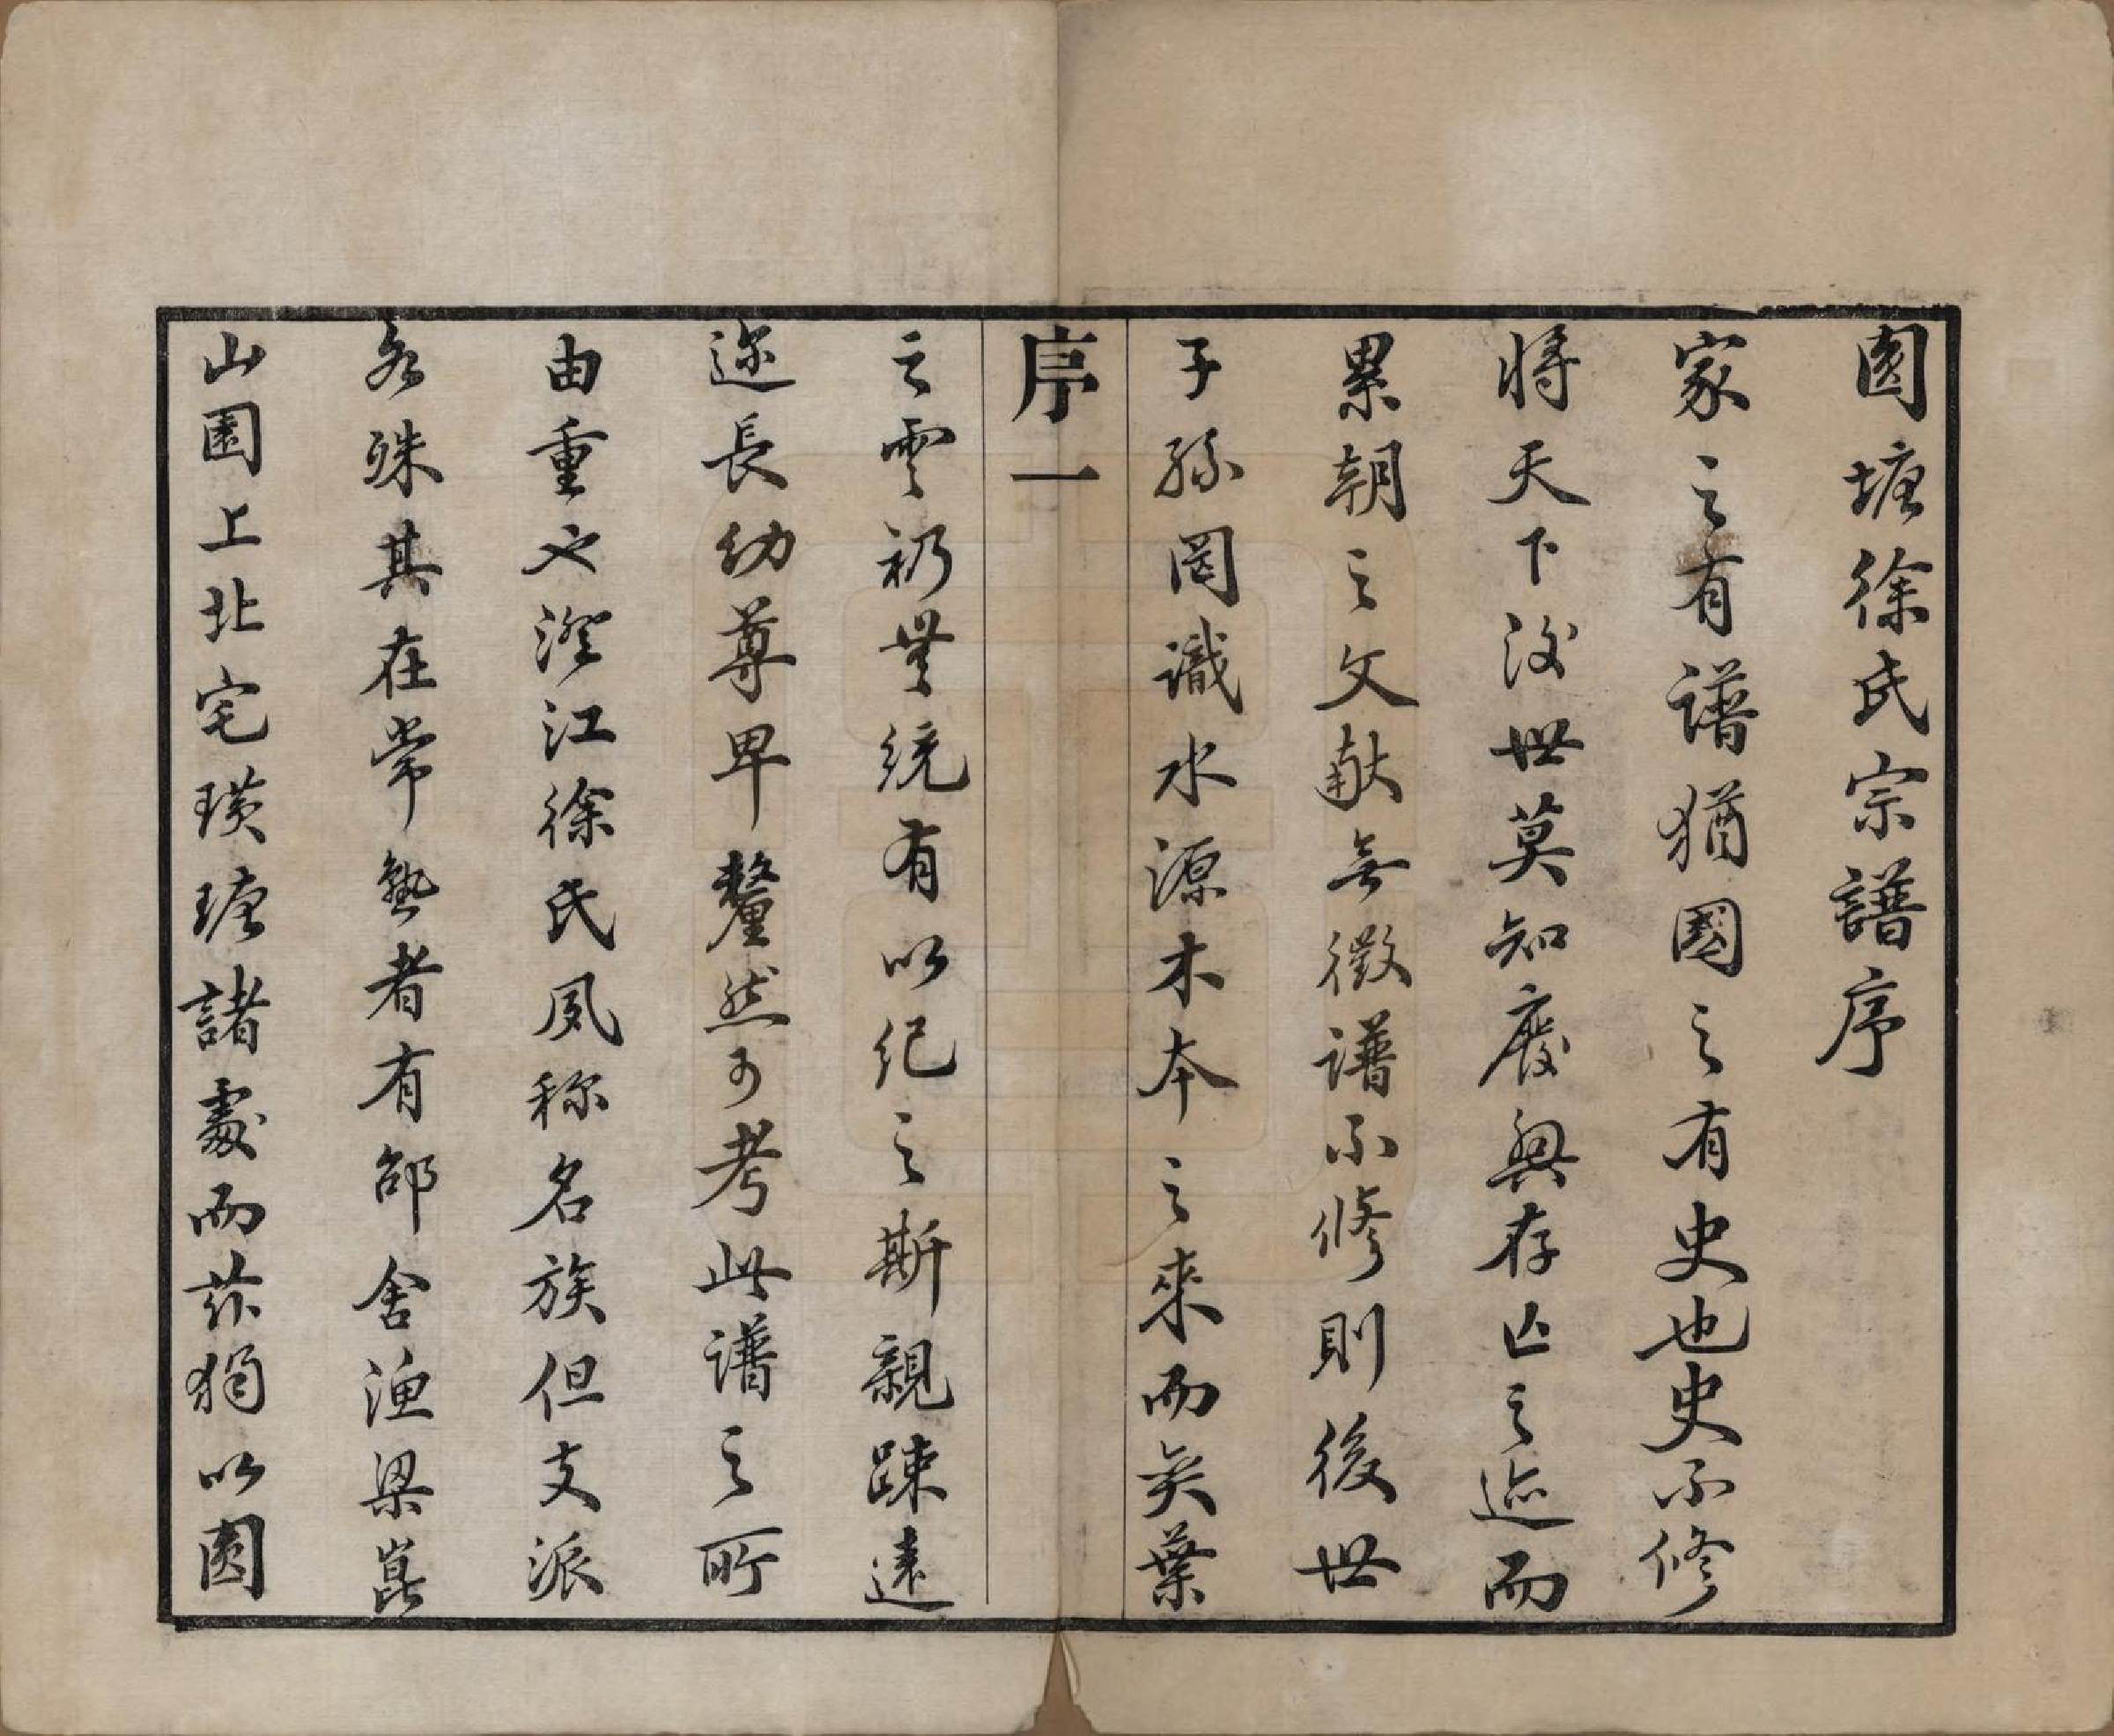 圓塘徐氏宗譜序
家之有譜猶國之有史也史不修
將天下後世莫知廢興存亡之迹而
累朝之文獻無徵譜不修則後世
子孫罔識水源木本之來而奕葉
序一
之雲礽無統有以紀之斯親疎遠
邇長幼尊卑釐然可考此譜之所
由重也澄江徐氏夙称名族但支派
各殊其在常熟者有邵舍漁梁崑
山園上北宅璜瑭諸處而茲獨以圓